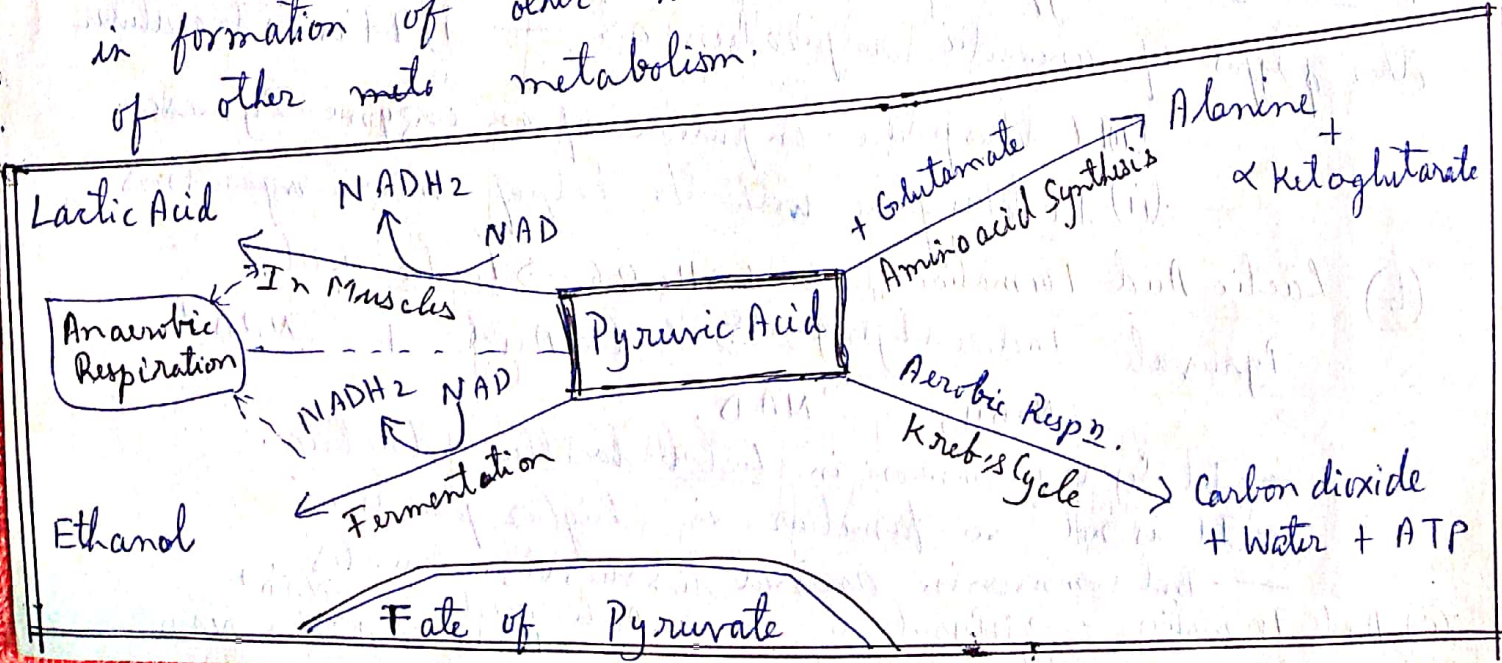 in formation of other
of other meto metabolism.
Lactic Acid
NADH2
NAD
In Muscles
Anaerobic
Respiration
NADH2 NAD
Fermentation
Ethanol
Pyruvic Acid
+ Glutamate
Aminoacid Synthesis
Alanine
+
α Ketoglutarate
Aerobic Respn.
Kreb's Cycle
Carbon dioxide
+ Water + ATP
Fate of Pyruvate